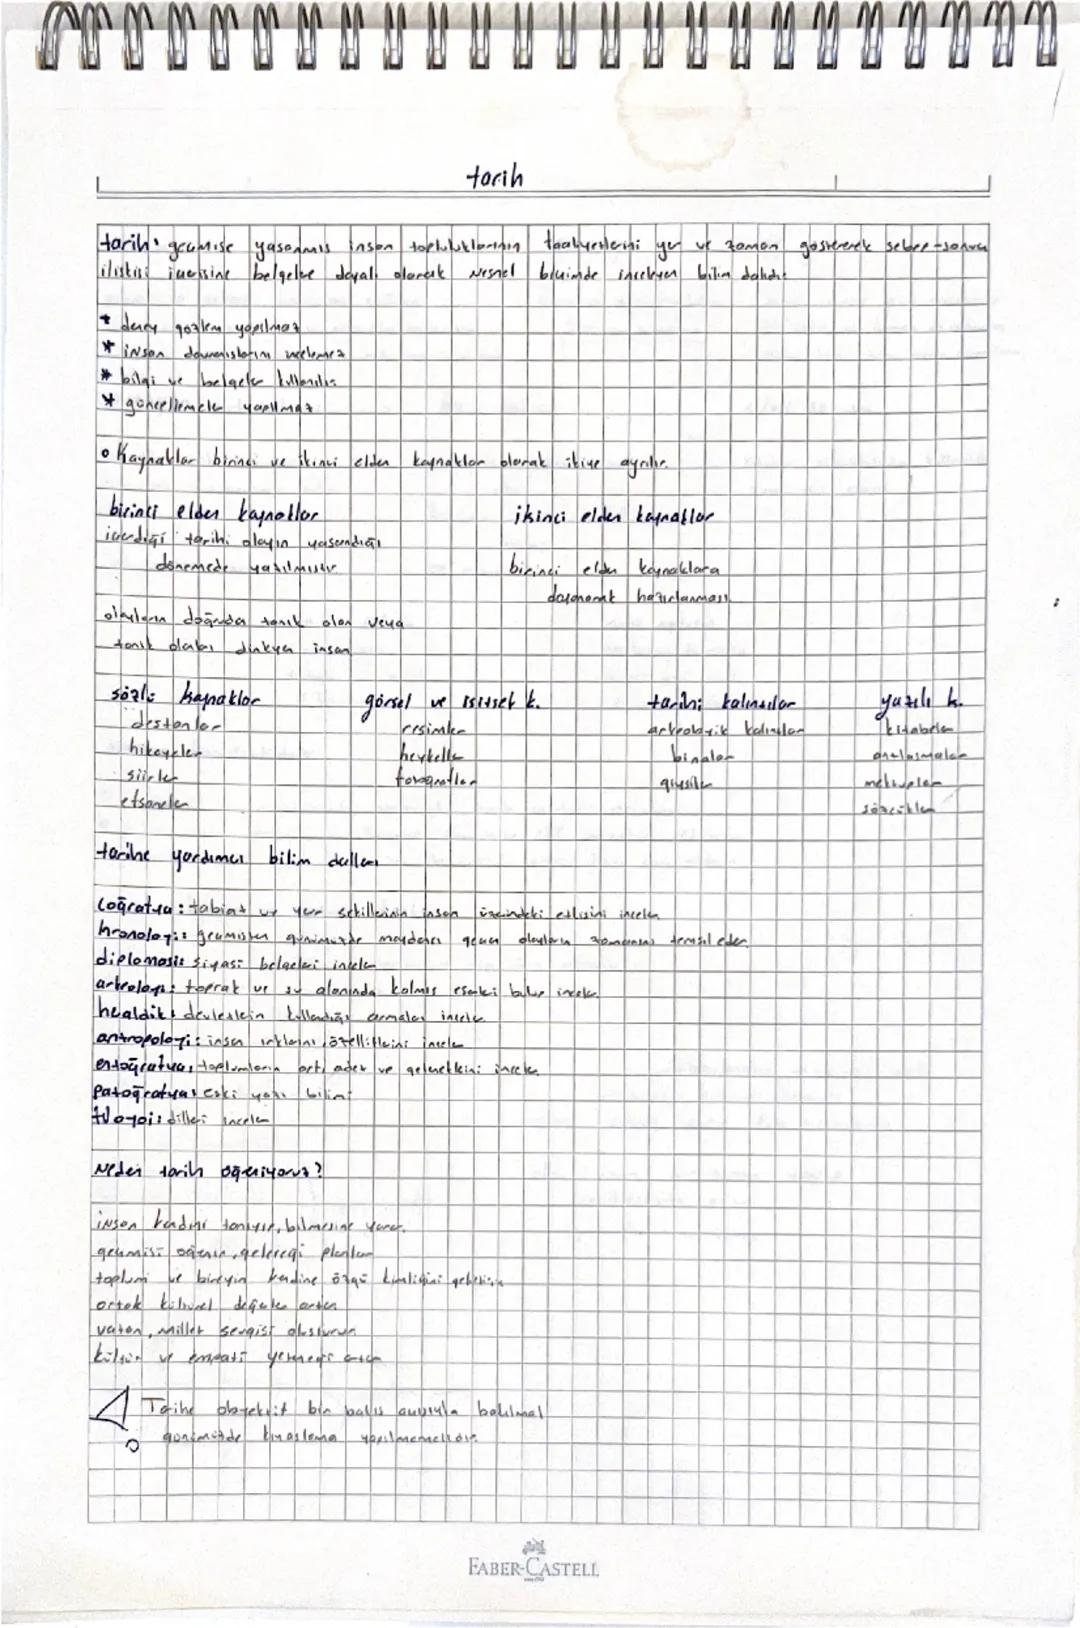 tarih
tarih: geçmişte yaşanmış insan topluluklarının faaliyetlerini yer ve zaman göstererek sebep-sonuç
ilişkisi içerisine belgelere dayalı olarak nesnel biçimde inceleyen bilim dalıdır
* deney gözlem yapılmaz
* insan davranışlarını incelemez
* bilgi ve belgeler kullanılır
* güncellemeler yapılmaz
• Kaynaklar birinci ve ikinci elden kaynaklar olarak ikiye ayrılır.
birinci elden kaynaklar ikinci elden kaynaklar
içerdiği tarihi olayın yaşandığı
dönemede yazılmıştır birinci elden kaynaklara
dayanarak hazırlanması
olayların doğrudan tanık olan veya
tanık olanları dinleyen insan
sözlü kaynaklar görsel ve işitsel k. tarihi kalıntılar yazılı k.
destanlar resimler arkeolojik kalıntılar kitabeler
hikayeler heykeller binalar antlaşmalar
şiirler fotoğraflar giysiler mektuplar
efsaneler sözcükler
tarihe yardımcı bilim dalları
Coğrafya: tabiat ve yer şekillerinin insan üzerindeki etkisini inceler
kronoloji: geçmişten günümüzde meydana gelen olayların zamanını temsil eder.
diplomasi: siyasi belgeleri inceler
arkeoloji: toprak ve su alanında kalmış eserleri bulup inceler.
heraldik: devletlerin kullandığı armaları inceler.
antropoloji: insan ırklarını, özelliklerini inceler
etnoğrafya: toplumların örf, adet ve geleneklerini inceler
Paloğrafya: Eski yazı bilimi
filoloji: dilleri inceler
Neden tarih öğreniyoruz?
insan kendini tanıyıp, bilmesine yarar.
geçmişi öğrenir, geleceği planlar
toplum ve bireyin kendine özgü kimliğini geliştirir
ortak kültürel değerler artar
vatan, millet sevgisi oluşturur
kültür ve empati yeteneği artar
Tarihe objektif bir bakış açısıyla bakılmalı
günümüzde kıyaslama yapılmamalıdır.
FABER-CASTELL